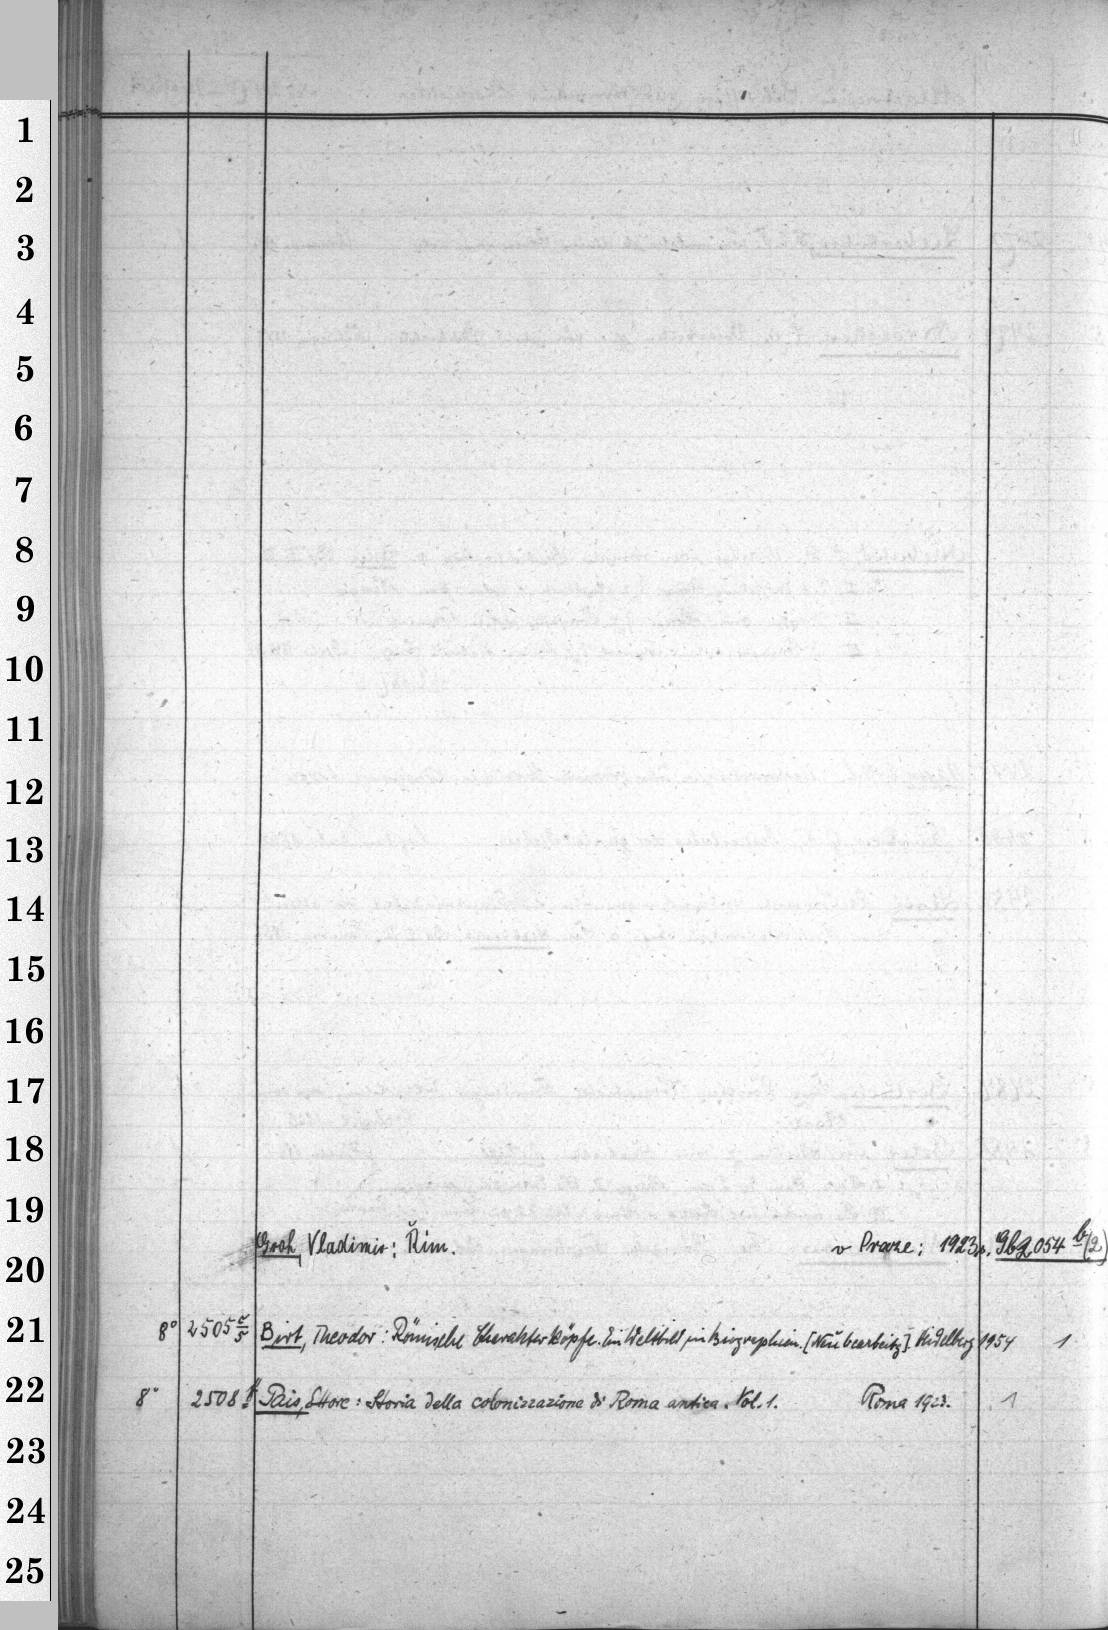 1
2
3
4
5
6
7
8
9
10
11
12
13
14
15
16
17
18
19
Groh, Vladimir: Řím. v Praze; 1923. Gb 2054 b/(2)
20
21 8° 2505 Birt, Theodor: Römische Charakterköpfe. Ein Weltbild in Biographien. [Neu bearbeitg]. Heidelberg 1954 1
22 8° 2508 Pais, Ettore: Storia della colonizzazione di Roma antica. Vol. 1. Roma 1923. 1
23
24
25